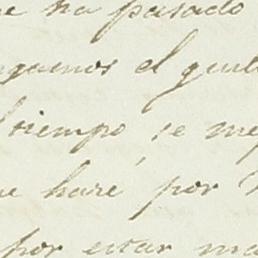 e ha pasado
nguenos el gust
tiempo, se me
ue hare por
por estar ma